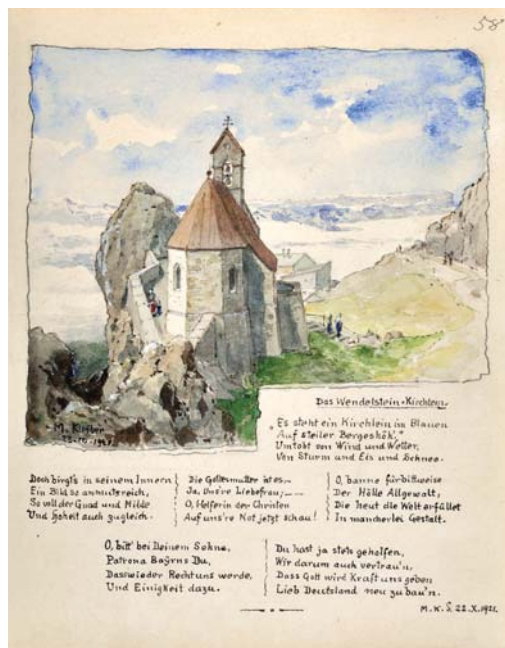 58
M. Kleiber
22.10.1921.
Das Wendelstein-Kirchlein.
"Es steht ein Kirchlein im Blauen
Auf steiler Bergeshöh',"
Umtobt von Wind und Wetter,
Von Sturm und Eis und Schnee.
Doch birgt's in seinem Innern
Ein Bild so anmutsreich,
So voll der Gnad und Milde
Und Hoheit auch zugleich.
Die Gottesmutter ist es,—
Ja, Uns're Liebe Frau;—
O, Helferin der Christen
Auf uns're Not jetzt schau!
O, banne fürbittweise
Der Hölle Allgewalt,
Die heut die Welt erfüllet
In mancherlei Gestalt.
O, bitt' bei Deinem Sohne,
Patrona Bayrns Du,
Dass wieder Recht uns werde,
Und Einigkeit dazu.
Du hast ja stets geholfen,
Wir darum auch vertrau'n,
Dass Gott wird Kraft uns geben
Lieb Deutsland neu zu bau'n.
M. K. S. 22.X.1921.